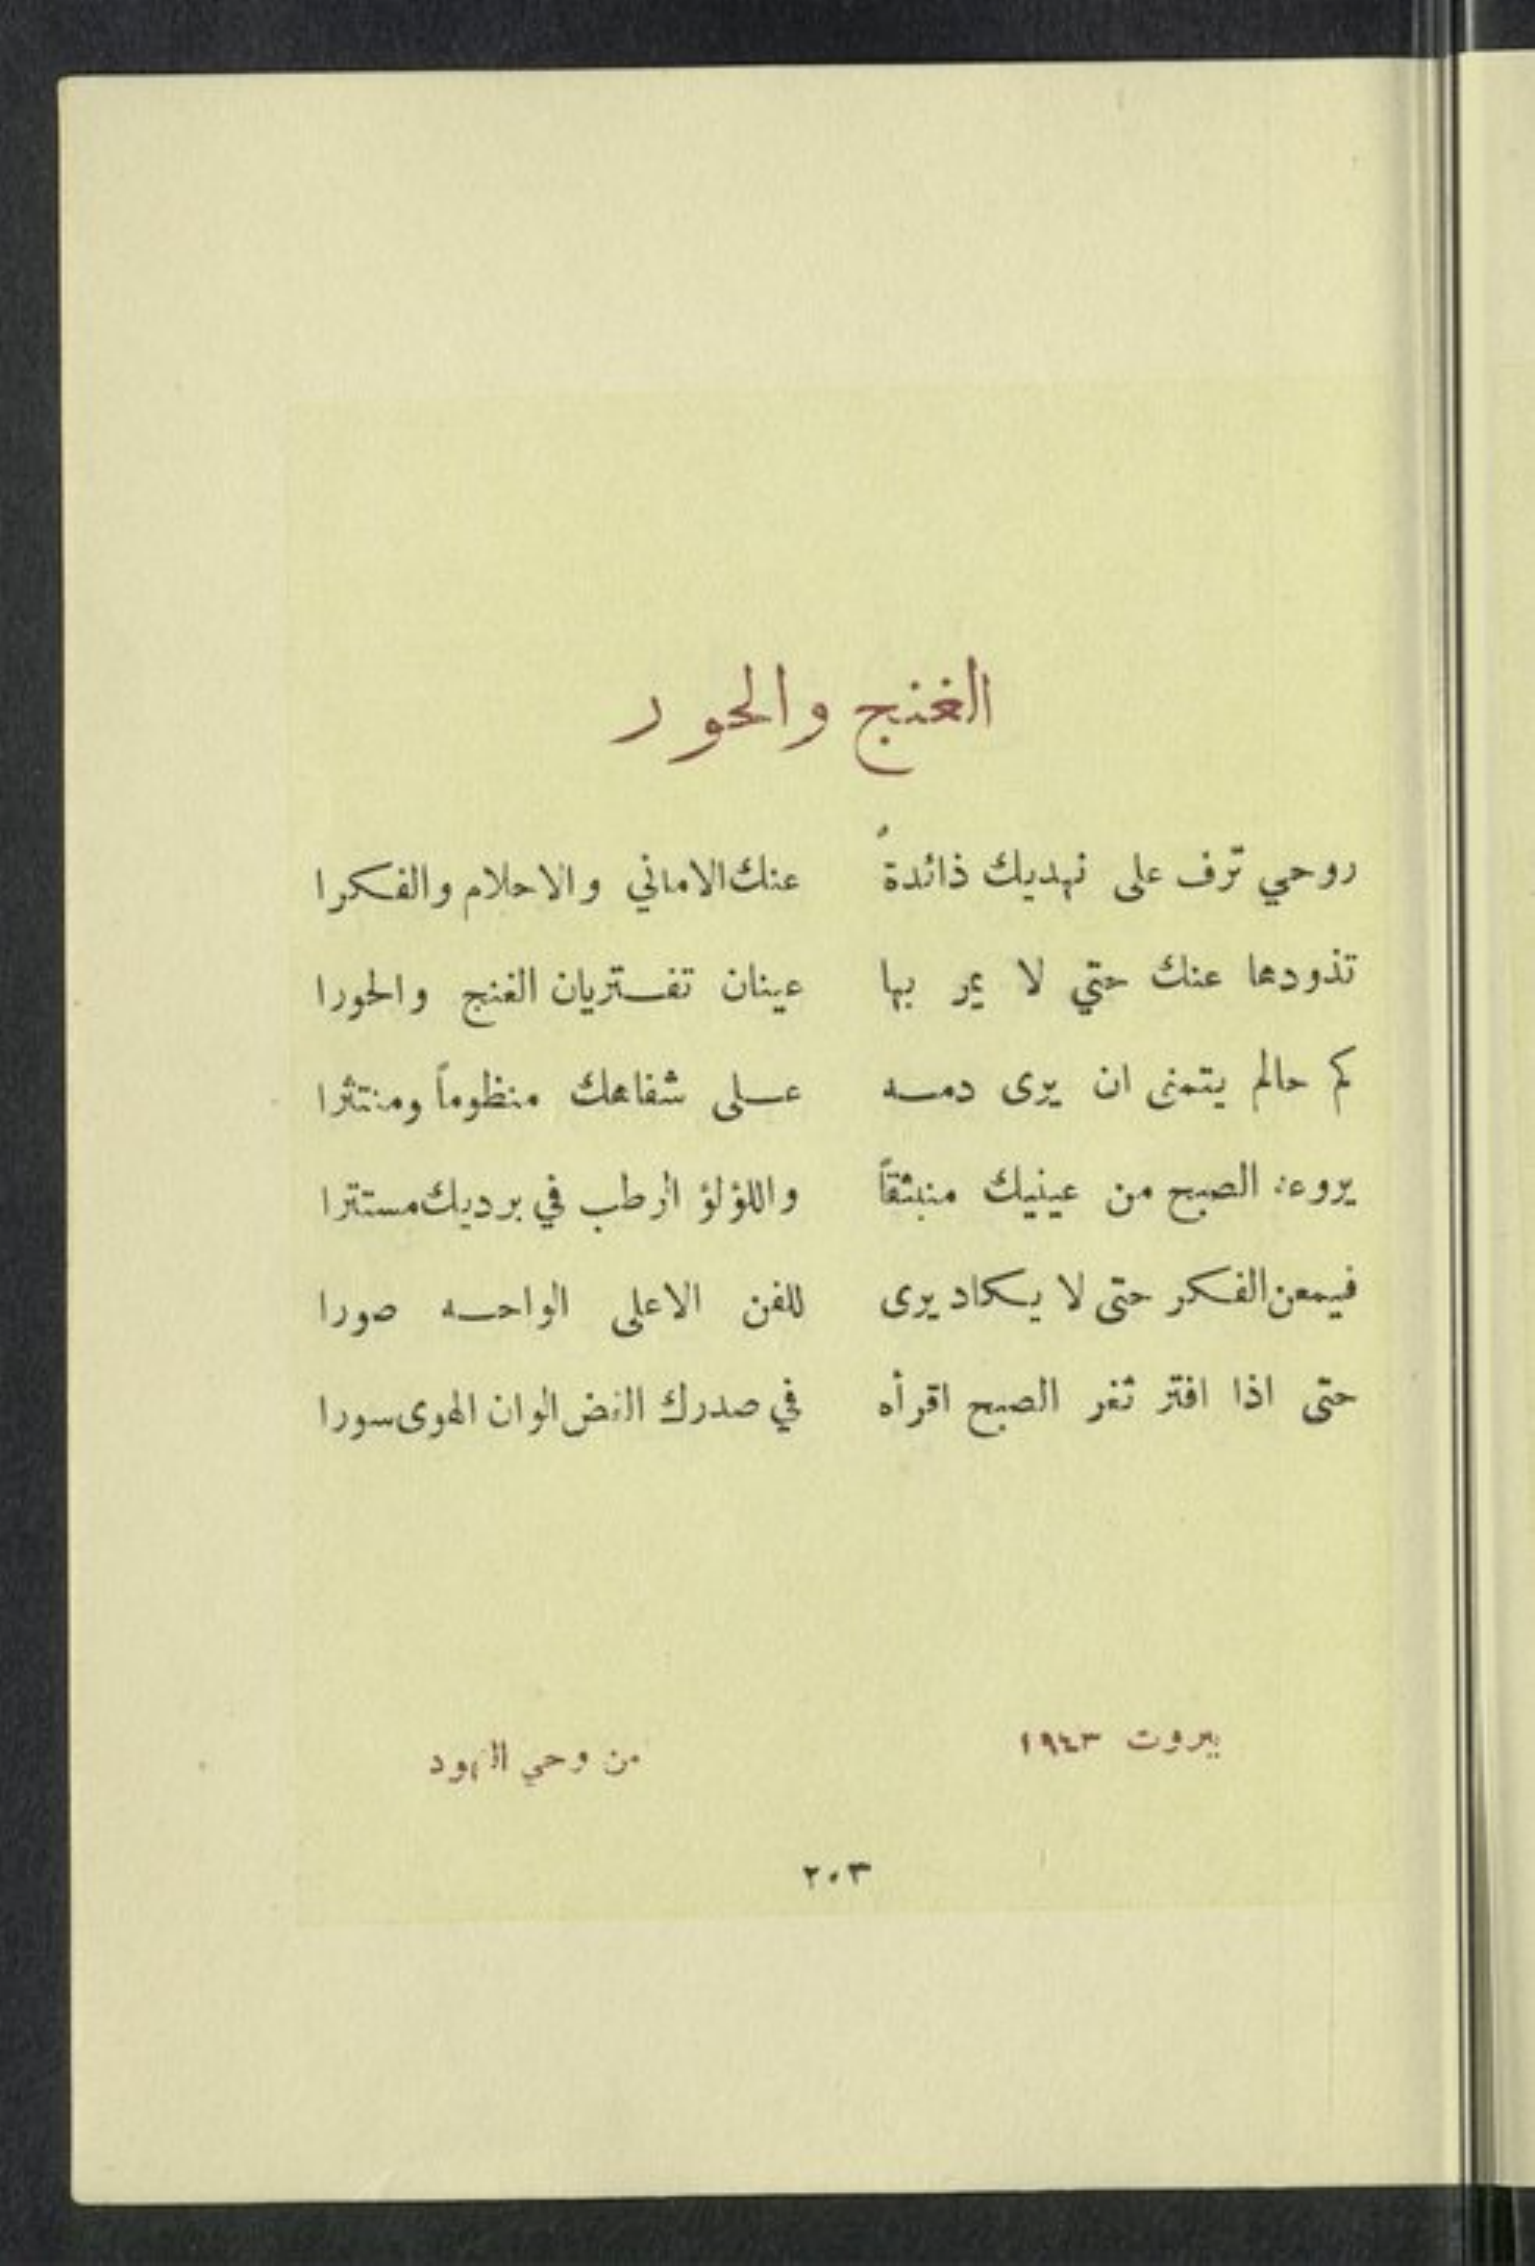 الغنج والحور
روحي ترّف على نهديك ذائدةً عنك الاماني والاحلام والفكرا
تذودها عنك حتي لا يمر بها عينان تفتريان الغنج والحورا
كم حالم يتمنى ان يرى دمه على شفاهك منظوماً ومنتثرا
يروعه الصبح من عينيك منبثقاً واللؤلؤ الرطب في برديك مستترا
فيمعن الفكر حتى لا يكاد يرى للفن الاعلى الواحه صورا
حتى اذا افتر ثغر الصبح اقرأه في صدرك الغض الوان الهوى سورا
بيروت ١٩٤٣
من وحي النهود
٢٠٣